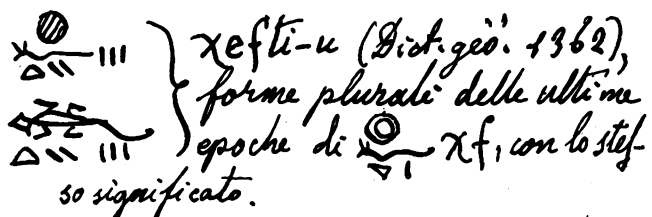 χefti-u (Dict. géo. 1362),
forme plurali delle ultime
epoche di χf, con lo stes-
so significato.